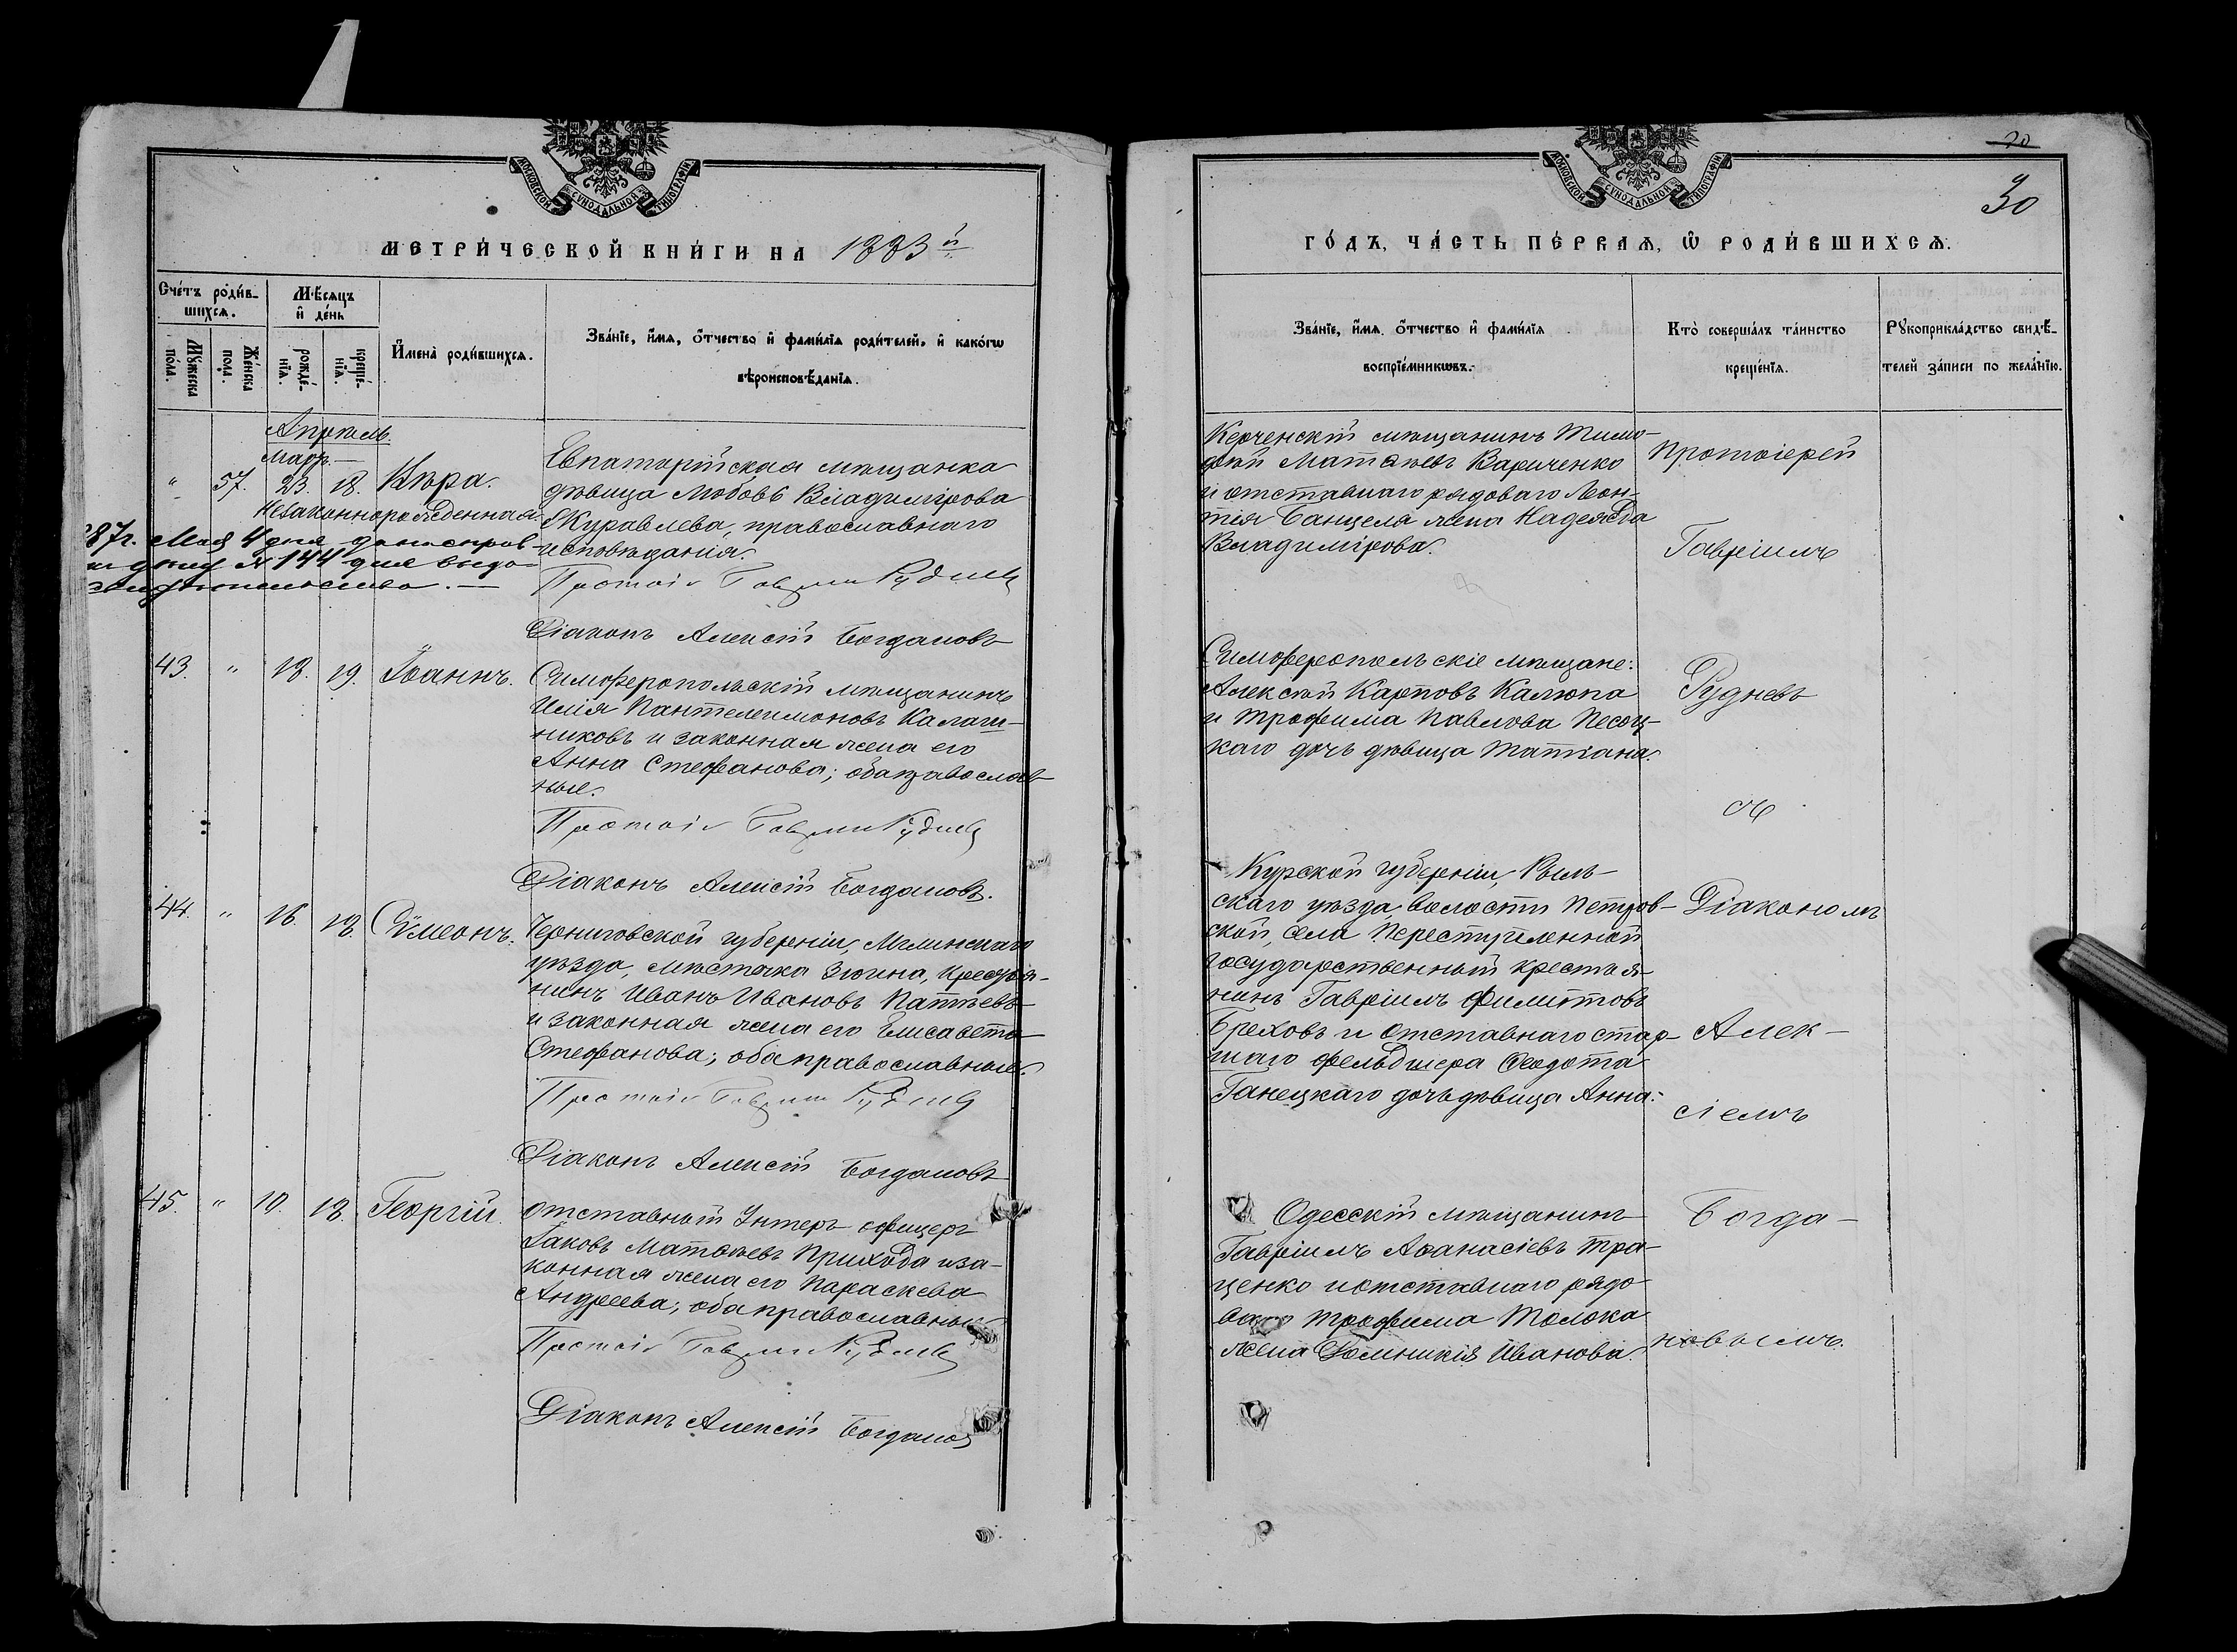 МОСКОВСКОЙ СѴНОДАЛЬНОЙ ТИПОГРАФІИ
МЕТРИ́ЧЕСКОЙ КНИ́ГИ НА 1883й
Сче́тъ роди́в-
шихся.
Мѣ́сяцъ
и҆ де́нь
Мꙋ́жеска
по́ла.
Же́нска
по́ла.
рожде́-
нїѧ.
креще́-
нїѧ.
И҆мена̀ роди́вшихсѧ.
Зва́нїе, и҆́мѧ, ѻ҆́тчество и҆ фамѝлїѧ роди́телей, и҆ како́гѡ
вѣроисповѣ́данїѧ.
Апрѣль.
Март.
" 57. 23. 18. Кѵра.
Незаконнорожденная
Евпаторійская мѣщанка
дѣвица Любовь Владимірова
Журавлева, православнаго
исповѣданія.
87г. Мая 4 дня
№ 144
Протоі Гавріи Руднев
Діаконъ Алексій Богдановъ
43. " 18. 19. Іоаннъ.
Симферопольскій мѣщанинъ
Илія Пантелеимоновъ Калаш-
никовъ и законная жена его
Анна Стефанова; оба православ-
ные.
Протоі Гавріи Руднев
Діаконъ Алексій Богдановъ.
44. " 16. 18. Сѵмеонъ.
Черниговской губерніи, Мглинскаго
уѣзда, мѣстечка крестья-
нинъ Иванъ Ивановъ
и законная жена его Елисавета
Стефанова; оба православные.
Протоі Гавріи Руднев
Діаконъ Алексій Богдановъ
45. " 10. 18. Георгій.
Отставный Унтеръ-офицеръ
Іаковъ Матѳѣевъ Приходa и за-
конная жена его Параскева
Андреева; оба православные
Протоі Гавріи Руднев
Діаконъ Алексій Богданов
20
30
МОСКОВСКОЙ СѴНОДАЛЬНОЙ ТИПОГРАФІИ
ГО́ДЪ, ЧА́СТЬ ПЕ́РВАѦ, Ѡ РОДИ́ВШИХСѦ.
Зва́нїе, и҆́мѧ, ѻ҆́тчество и҆ фамѝлїѧ
воспрїе́мникѡвъ.
Кто̀ соверша́лъ та́инство
креще́нїѧ.
Рꙋкоприкла́дство свидѣ́-
телей за́писи по жела́нїю.
Керченскій мѣщанинъ Тимо-
ѳей Матѳѣевъ Вариченко
и отставнаго рядоваго Леон-
тія Банцеля жена Надежда
Владимірова.
Симферопольскіе мѣщане:
Алексѣй Карповъ Калюпа
и Трофима Павлова Песоц-
каго дочь дѣвица Татіана.
Курской губерніи, Рыль-
скаго уѣзда, волости Петров-
ской, села
государственный крестья-
нинъ Гавріилъ Филиповъ
Бреховъ и отставнаго стар-
шаго фельдшера Ѳеодота
Ганецкаго дочь дѣвица Анна.
Одесскій мѣщанинъ
Гавріилъ Аѳанасіевъ Тра-
ценко и отставнаго рядо-
ваго Трофима Толока
жена Домникія Иванова.
Протоіерей
Гавріилъ
Рудневъ
съ
Діакономъ
Алек-
сіемъ
Богда-
новымъ.